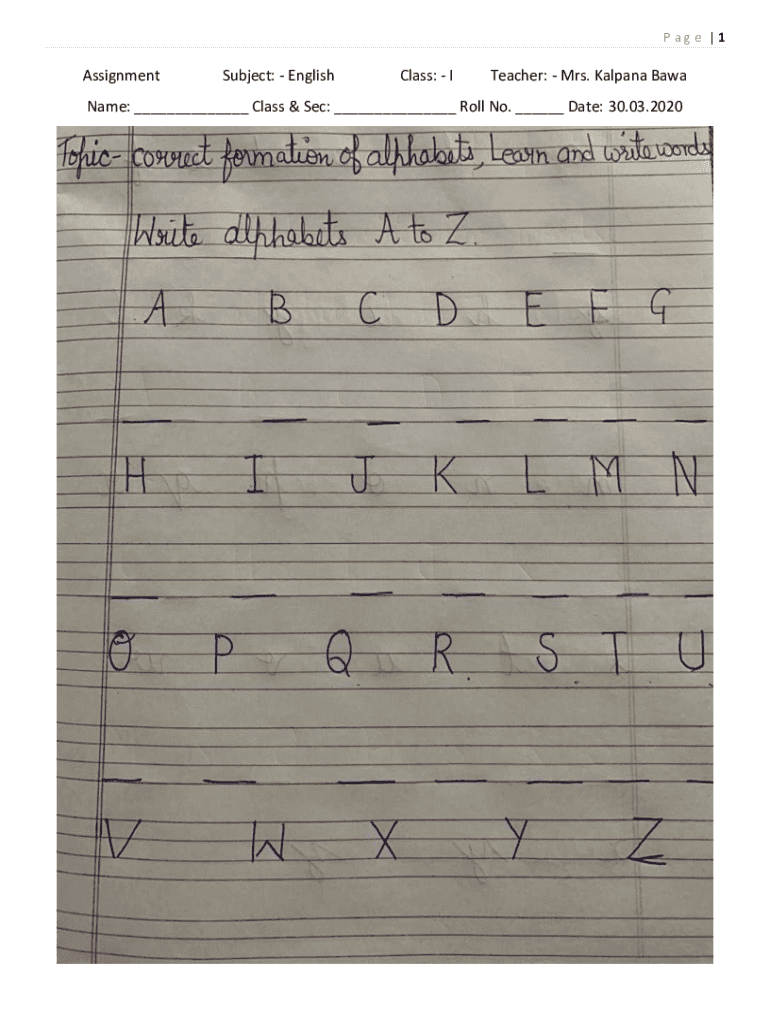 Page | 1
Assignment Subject: - English Class: - I Teacher: - Mrs. Kalpana Bawa
Name: ______________ Class & Sec: _______________ Roll No. ______ Date: 30.03.2020
Topic- correct formation of alphabets, Learn and write words
Write alphabets A to Z.
A B C D E F G
H I J K L M N
O P Q R S T U
V W X Y Z